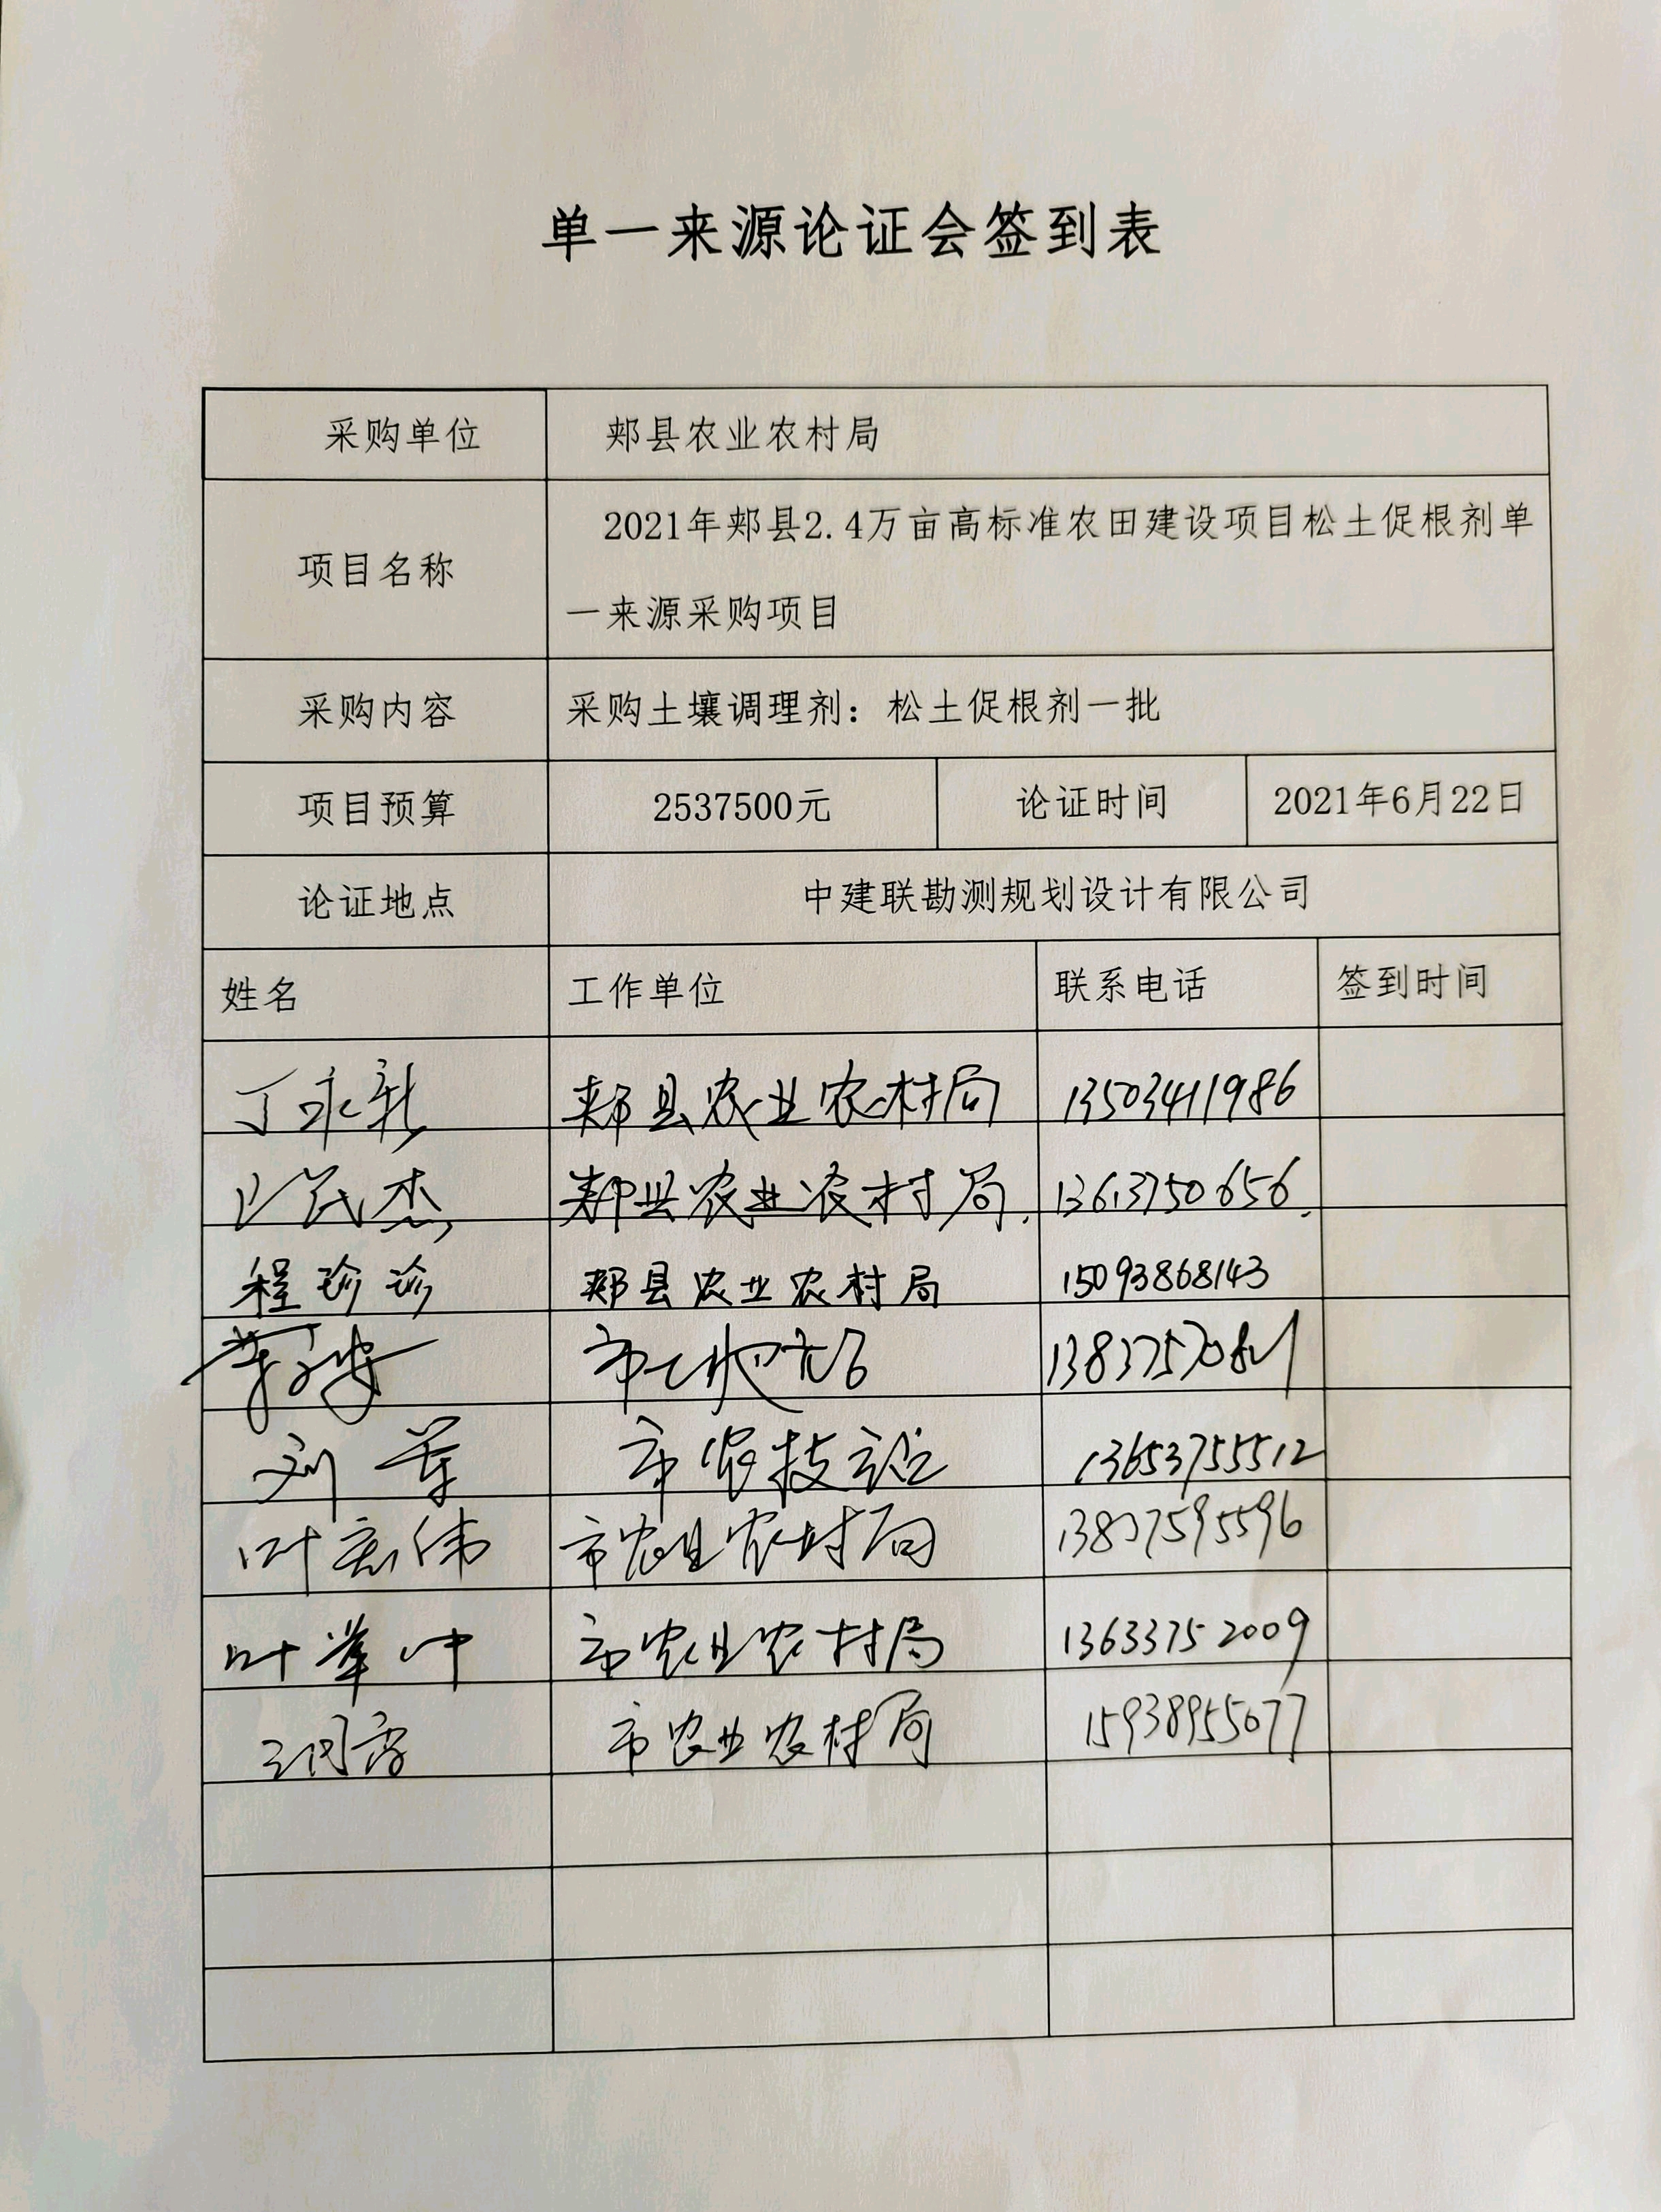 单一来源论证会签到表
采购单位 郏县农业农村局
项目名称 2021年郏县2.4万亩高标准农田建设项目松土促根剂单
一来源采购项目
采购内容 采购土壤调理剂：松土促根剂一批
项目预算 2537500元 论证时间 2021年6月22日
论证地点 中建联勘测规划设计有限公司
姓名 工作单位 联系电话 签到时间
丁永新 郏县农业农村局 13503411986
郏县农业农村局. 13613750656.
程珍珍 郏县农业农村局 15093868143
市
刘 市农技站 13653755512
叶宏伟 市农业农村局 13837595596
叶举中 市农业农村局 13633752009
王 市农业农村局 15938955077